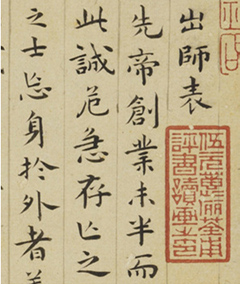 出師表
先帝創業未半而
此誠危急存亡之
之士忘身於外者